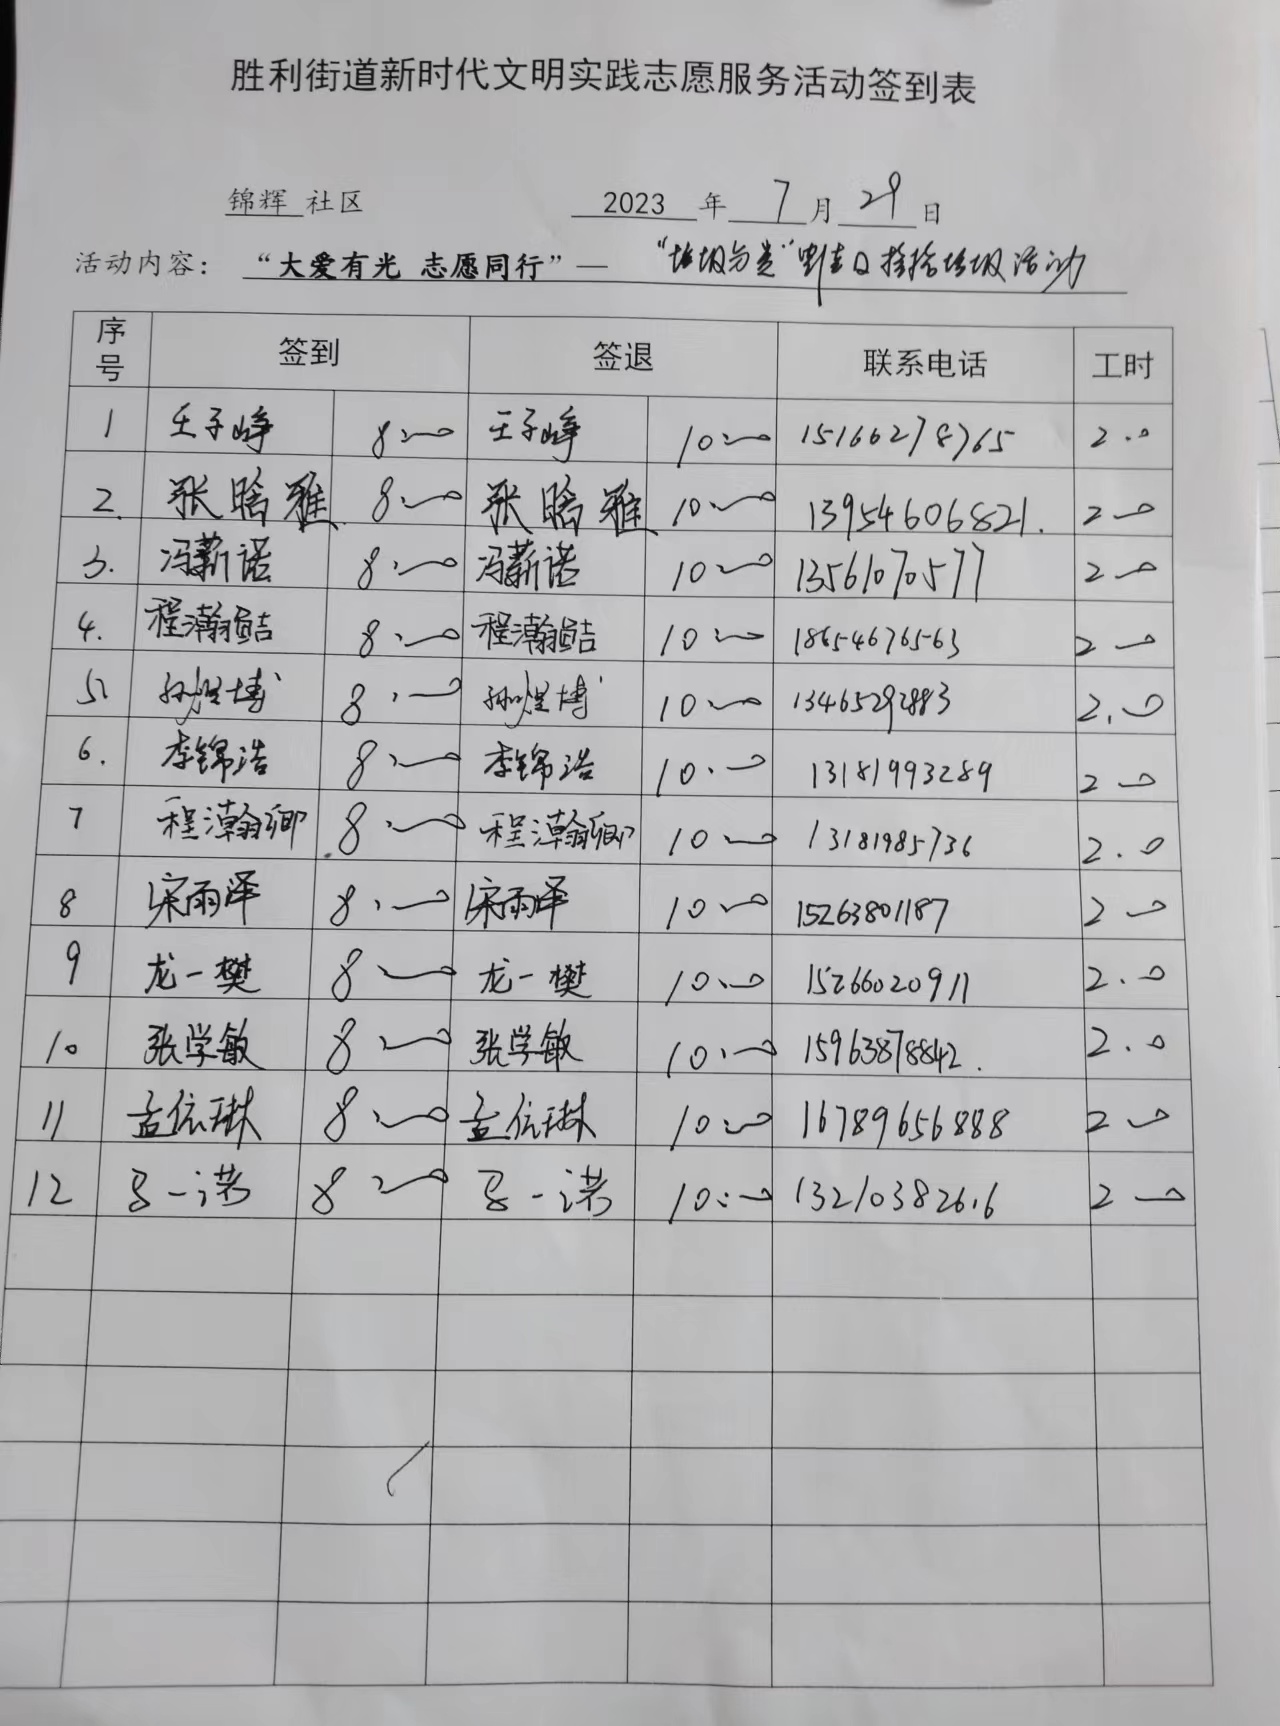 胜利街道新时代文明实践志愿服务活动签到表
锦辉 社区 2023 年 7 月 29 日
活动内容： “大爱有光 志愿同行”— “垃圾分类” 日 捡拾垃圾活动
序号 签到 签退 联系电话 工时
1 王子峥 8:00 王子峥 10:00 15166278765 2.0
2. 张晗雅 8:00 张晗雅 10:00 13954606821. 2.0
3. 冯薪诺 8:00 冯薪诺 10:00 13561070577 2.0
4. 程瀚喆 8:00 程瀚喆 10:00 18654676563 2.0
5. 孙煜博 8:00 孙煜博 10:00 13465292883 2.0
6. 李锦浩 8:00 李锦浩 10:00 13181993289 2.0
7 程瀚卿 8:00 程瀚卿 10:00 13181985736 2.0
8 宋雨泽 8:00 宋雨泽 10:00 15263801187 2.0
9 龙一樊 8:00 龙一樊 10:00 15266020911 2.0
10 张学敏 8:00 张学敏 10:00 15963878842. 2.0
11 孟依琳 8:00 孟依琳 10:00 16789656888 2.0
12 马一诺 8:00 马一诺 10:00 13210382616 2.0